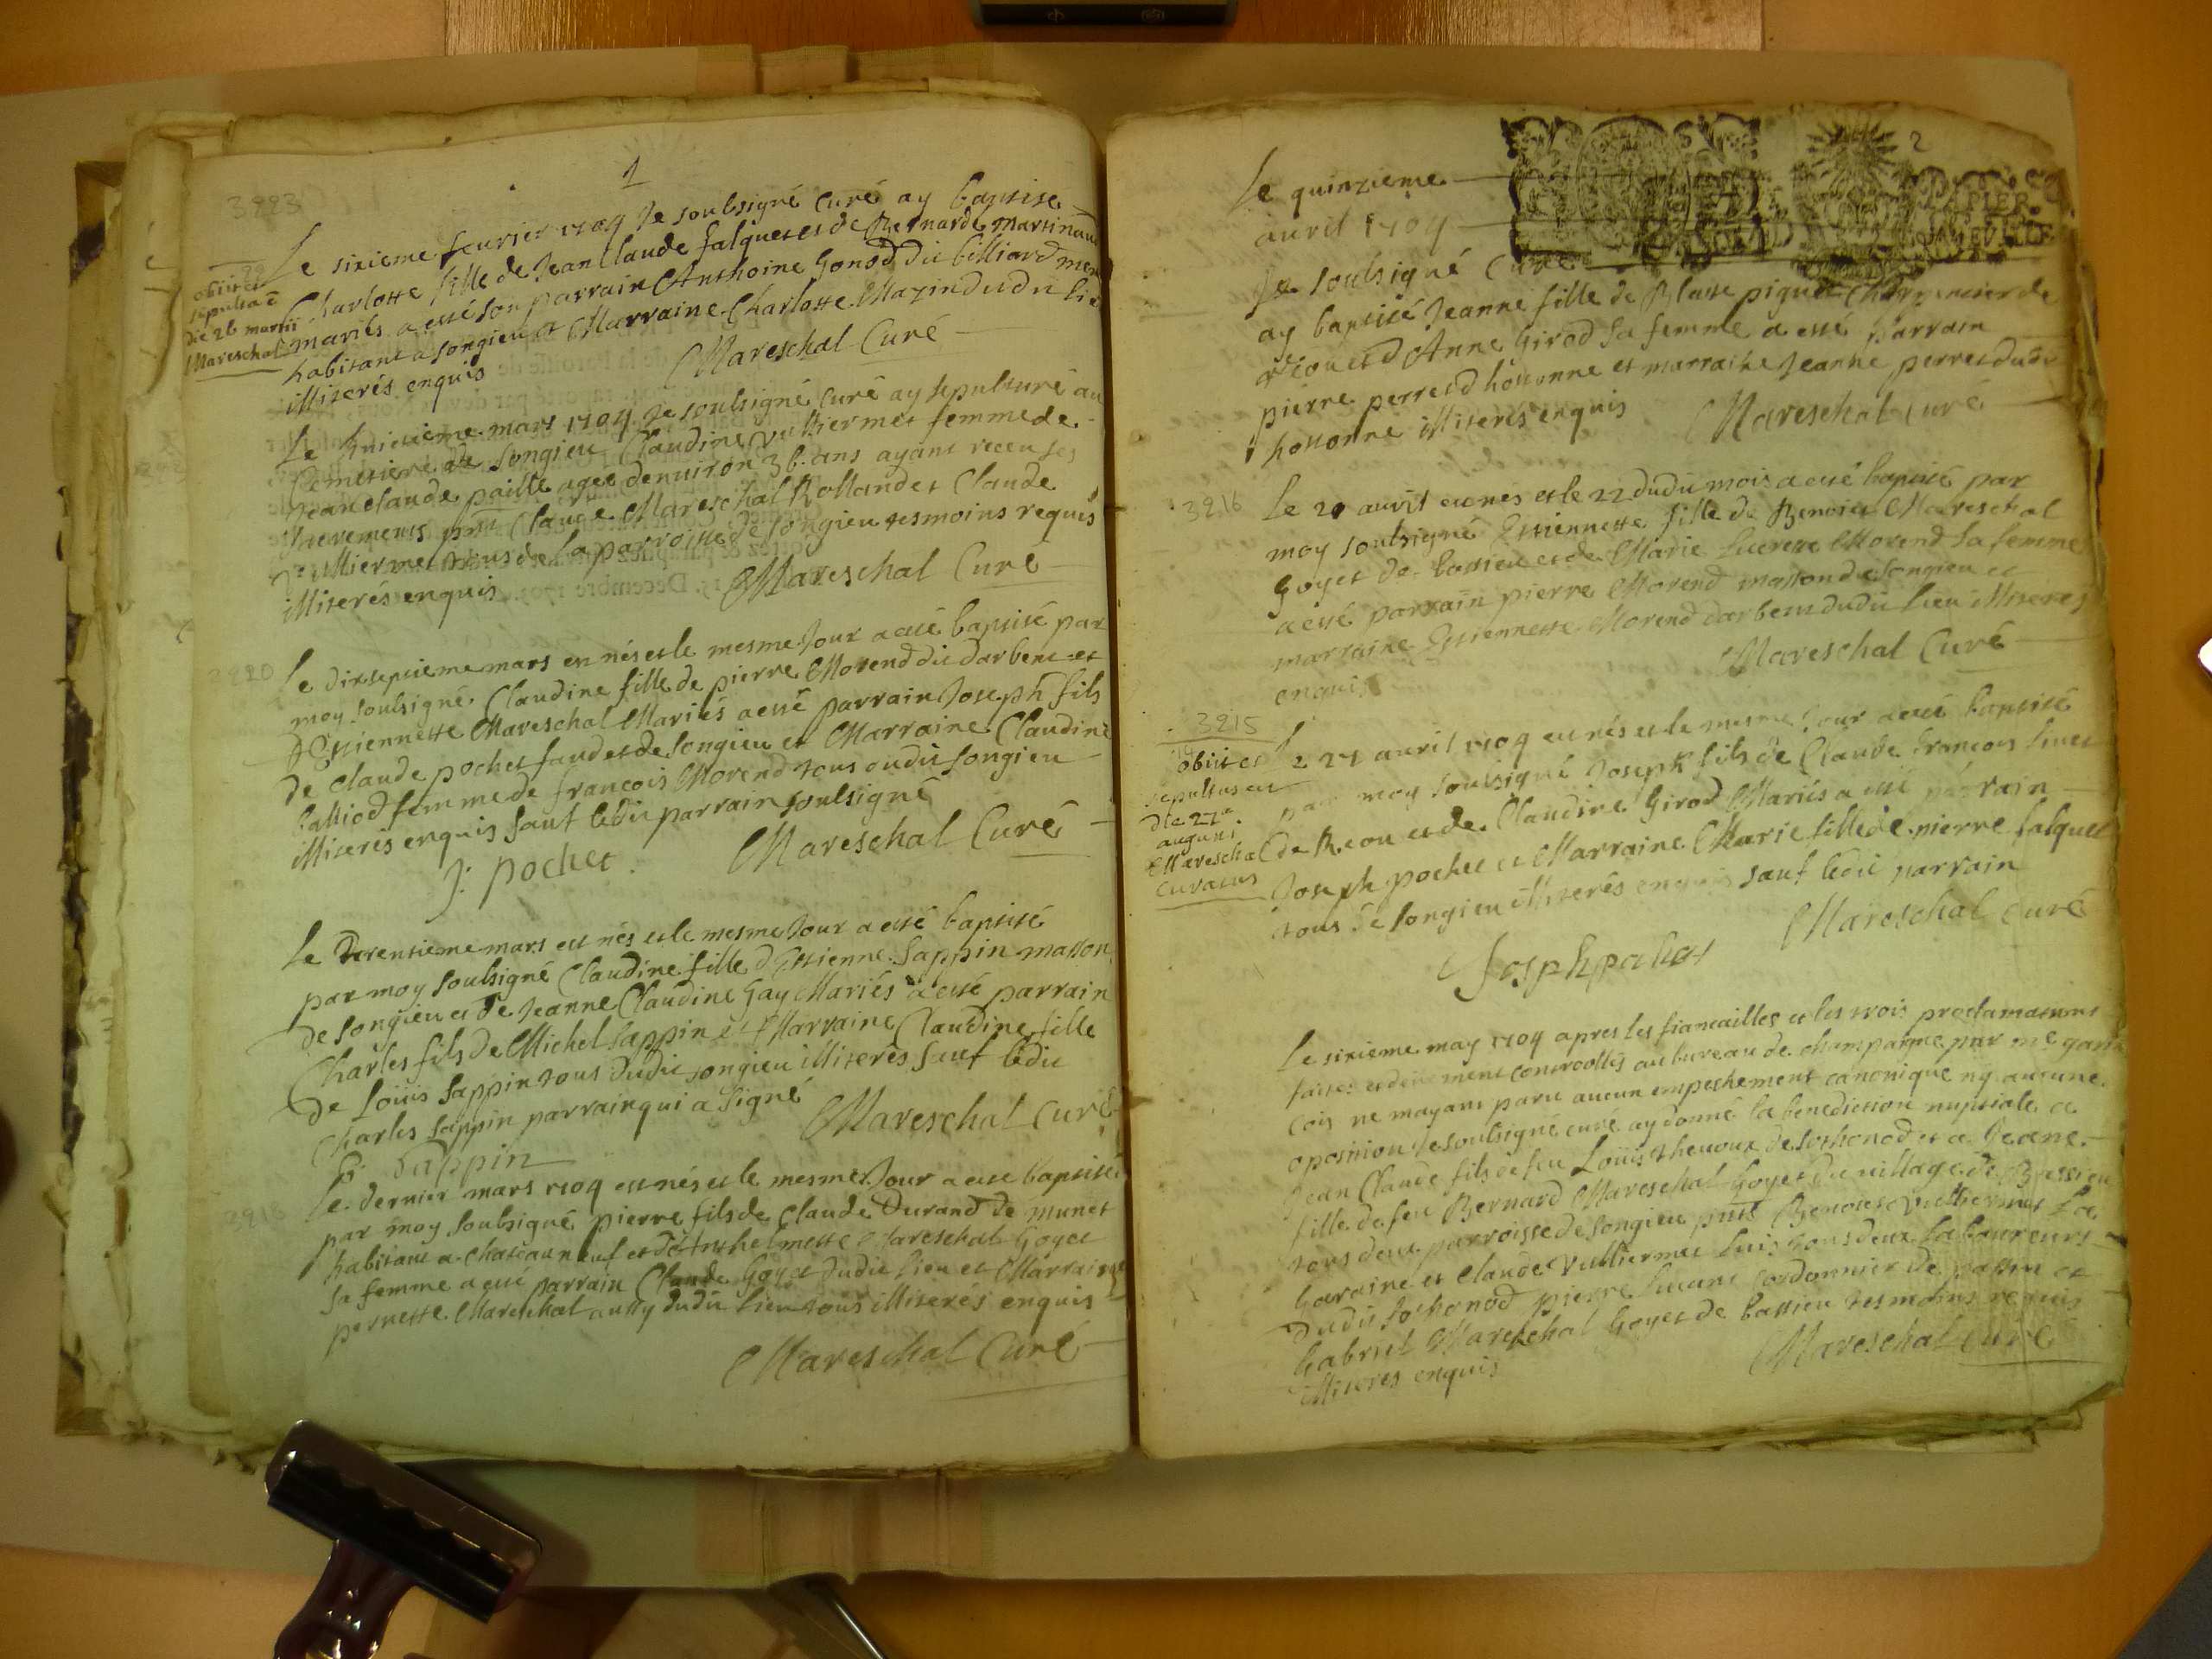 1
3223
Le sixieme feurier 1704 Je soubsigné Curé ay baptisé
Charlotte fille de Jean Claude falquet et de Bernarde Martinand
mariés a esté son parrain Anthoine Gonod dit billiard
habitant a songieu et Marraine Charlotte Mazin dudit lieu
illiterés enquis
Mareschal Curé
obiit et
sepulta e
die 26 martii
Mareschal
Le huitieme mars 1704 Je soubsigné Curé ay sepulturé au
Cemetiere de Songieu Claudine Vulliermet femme de
Jean Claude paille agee denuiron 36 ans ayant receu ses
sacrements pnts Claude Mareschal Rolland et Claude
Vulliermet tous de la parroisse de songieu tesmoins requis
illiterés enquis
Mareschal Curé
3220
Le dixseptieme mars est nés et le mesme Jour a esté baptisé par
moy soubsigné Claudine fille de pierre Morend dit darbent et
d'Estiennette Mareschal Mariés a esté parrain Joseph fils
de Claude pochet faudet de songieu et Marraine Claudine
balliod femme de francois Morend tous dudit songieu
illiterés enquis sauf ledit parrain soubsigné
J: pochet
Mareschal Curé
Le trentieme mars est nés et le mesme Jour a esté baptisé
par moy soubsigné Claudine fille d'Estienne Sappin masson
de songieu et de Jeanne Claudine Gay Mariés a esté parrain
Charles fils de Michel Sappin et Marraine Claudine fille
de Loüis Sappin tous dudit songieu illiterés sauf ledit
Charles Sappin parrain qui a signé
Mareschal Curé
Sappin
3218
Le dernier mars 1704 est nés et le mesme Jour a esté baptisé
par moy soubsigné pierre fils de Claude Durand de munet
habitant a chateauneuf et d'Anthelmette Mareschal Goyet
sa femme a esté parrain Claude Goyet dudit lieu et Marraine
pernette Mareschal aussy dudit lieu tous illiterés enquis
Mareschal Curé
2
PAPIER
Le quinzieme
auril 1704
Je soubsigné Curé
ay baptisé Jeanne fille de Blaise piquet Charpentier de
et d'Anne Girod sa femme a esté parrain
pierre perret d'hotonne et marraine Jeanne perret dudit
hotonne illiterés enquis
Mareschal Curé
3216
Le 20 auril est nés et le 22 dudit mois a esté baptisé par
moy soubsigné Estiennette fille de Benoist Mareschal
Goyet de bassieu et de Marie Lucresse Morend sa femme
a esté parrain pierre Morend masson de songieu et
marraine Estiennette Morend darbent dudit lieu illiterés
enquis
Mareschal Curé
3215
obiit et
sepultus est
die 27a
augusti
Mareschal
curatus
Le 27 auril 1704 est nés et le mesme Jour a esté baptisé
par moy soubsigné Joseph fils de Claude francois
de et de Claudine Girod Mariés a esté parrain
Joseph pochet et Marraine Marie fille de pierre falquet
tous de songieu illiterés enquis sauf ledit parrain
Mareschal Curé
Josph pochet
Le sixieme may 1704 apres les fiancailles et les trois proclamations
faites et deüement controollés au bureau de champagne par me
ne mayant paru aucun empeschement canonique ny aucune
oposition Je soubsigné curé ay donné la benediction nuptiale a
Jean Claude fils de feu Loüis theuoux de sothonod et a Jeane
fille de feu Bernard Mareschal Goyet du village de Bassieu
tous deux parroisse de songieu pnts Benoist Vulliermet La
Garaine et Claude Vulliermet tous deux laboureurs
dudit sothonod pierre Lucant Cordonnier de passin et
Gabriel Mareschal Goyet de bassieu tesmoins requis
illiterés enquis
Mareschal Curé